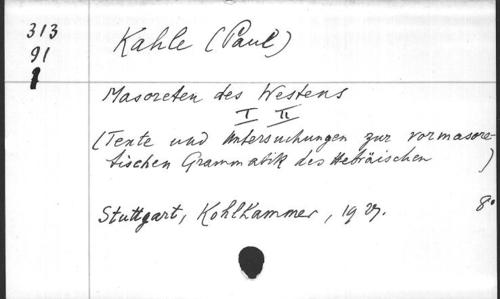 313
91
1
Kahle (Paul)
Masoreten des Westens
I II
(Texte und Untersuchungen zur vormasore-
tischen Grammatik des Hebräischen )
Stuttgart, Kohlkammer, 1927. 8°